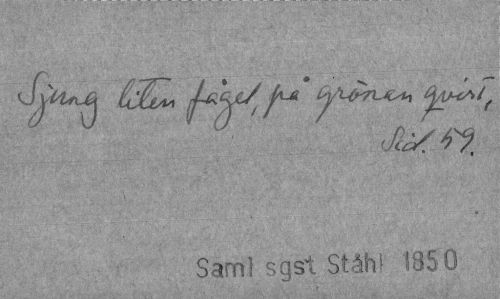 Sjung liten fågel, på grönan qvist,
Sid. 59.
Saml sgst Ståhl 1850